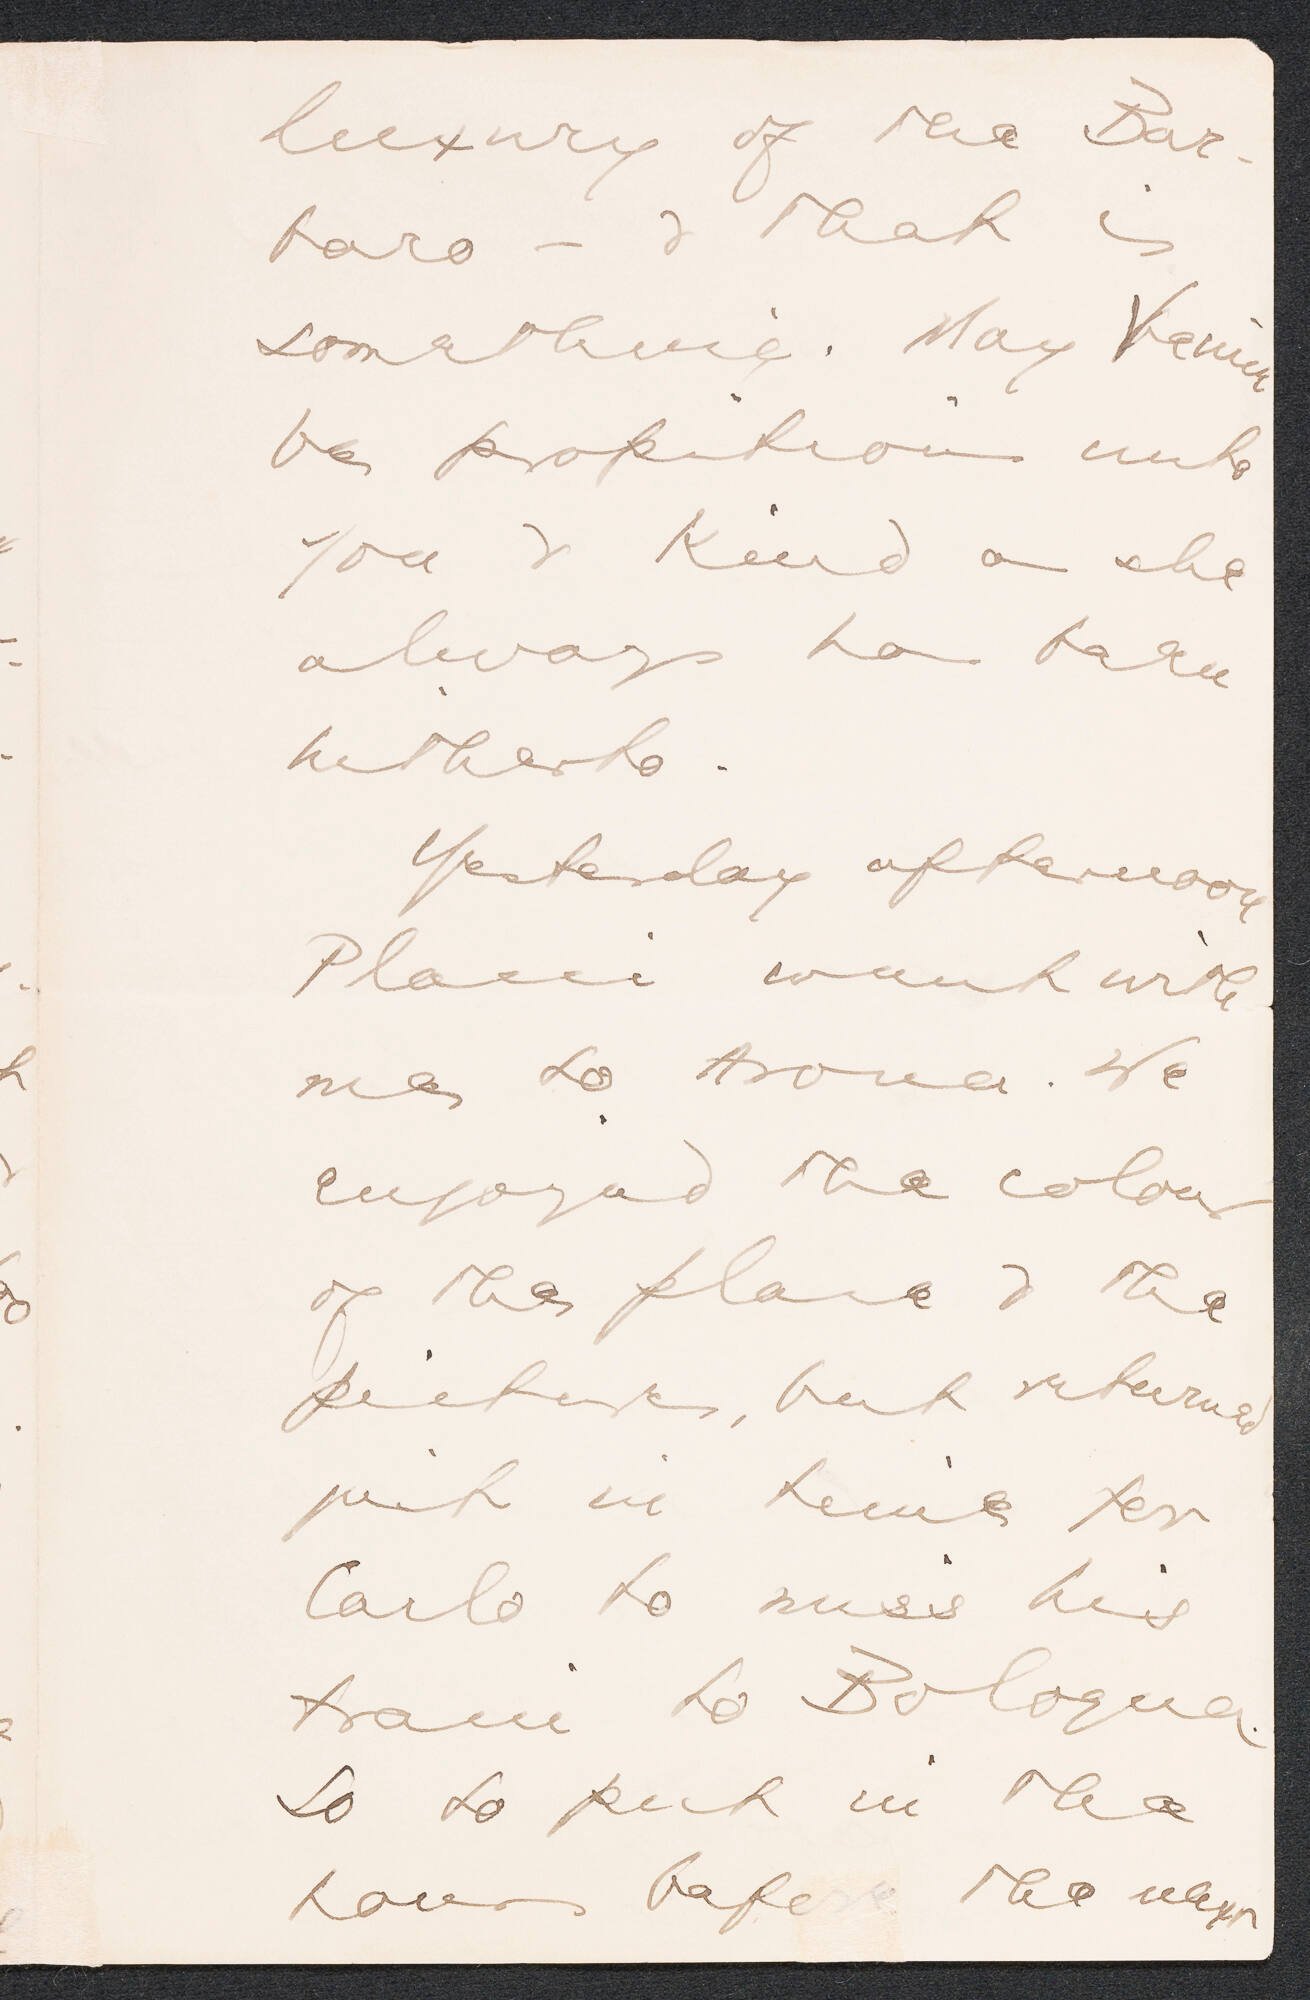 luxury of the Bar-
baro – & that is
something. May Venice
be propitious unto
you & kind as she
always has been
hitherto.
Yesterday afternoon
Placci went with
me to Arona. We
enjoyed the colour
of the place & the
pictures, but returned
just in time for
Carlo to miss his
train to Bologna.
So to put in the
hours before the next